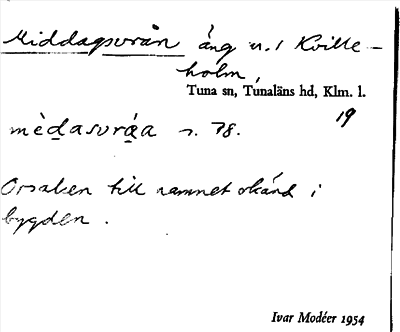 Middagsvrån äng u. / Kville-
holm,
Tuna sn, Tunaläns hd, Klm. l.
19
mèdasvrǻa s. 78.
Orsaken till namnet okänd i
bygden.
Ivar Modéer 1954